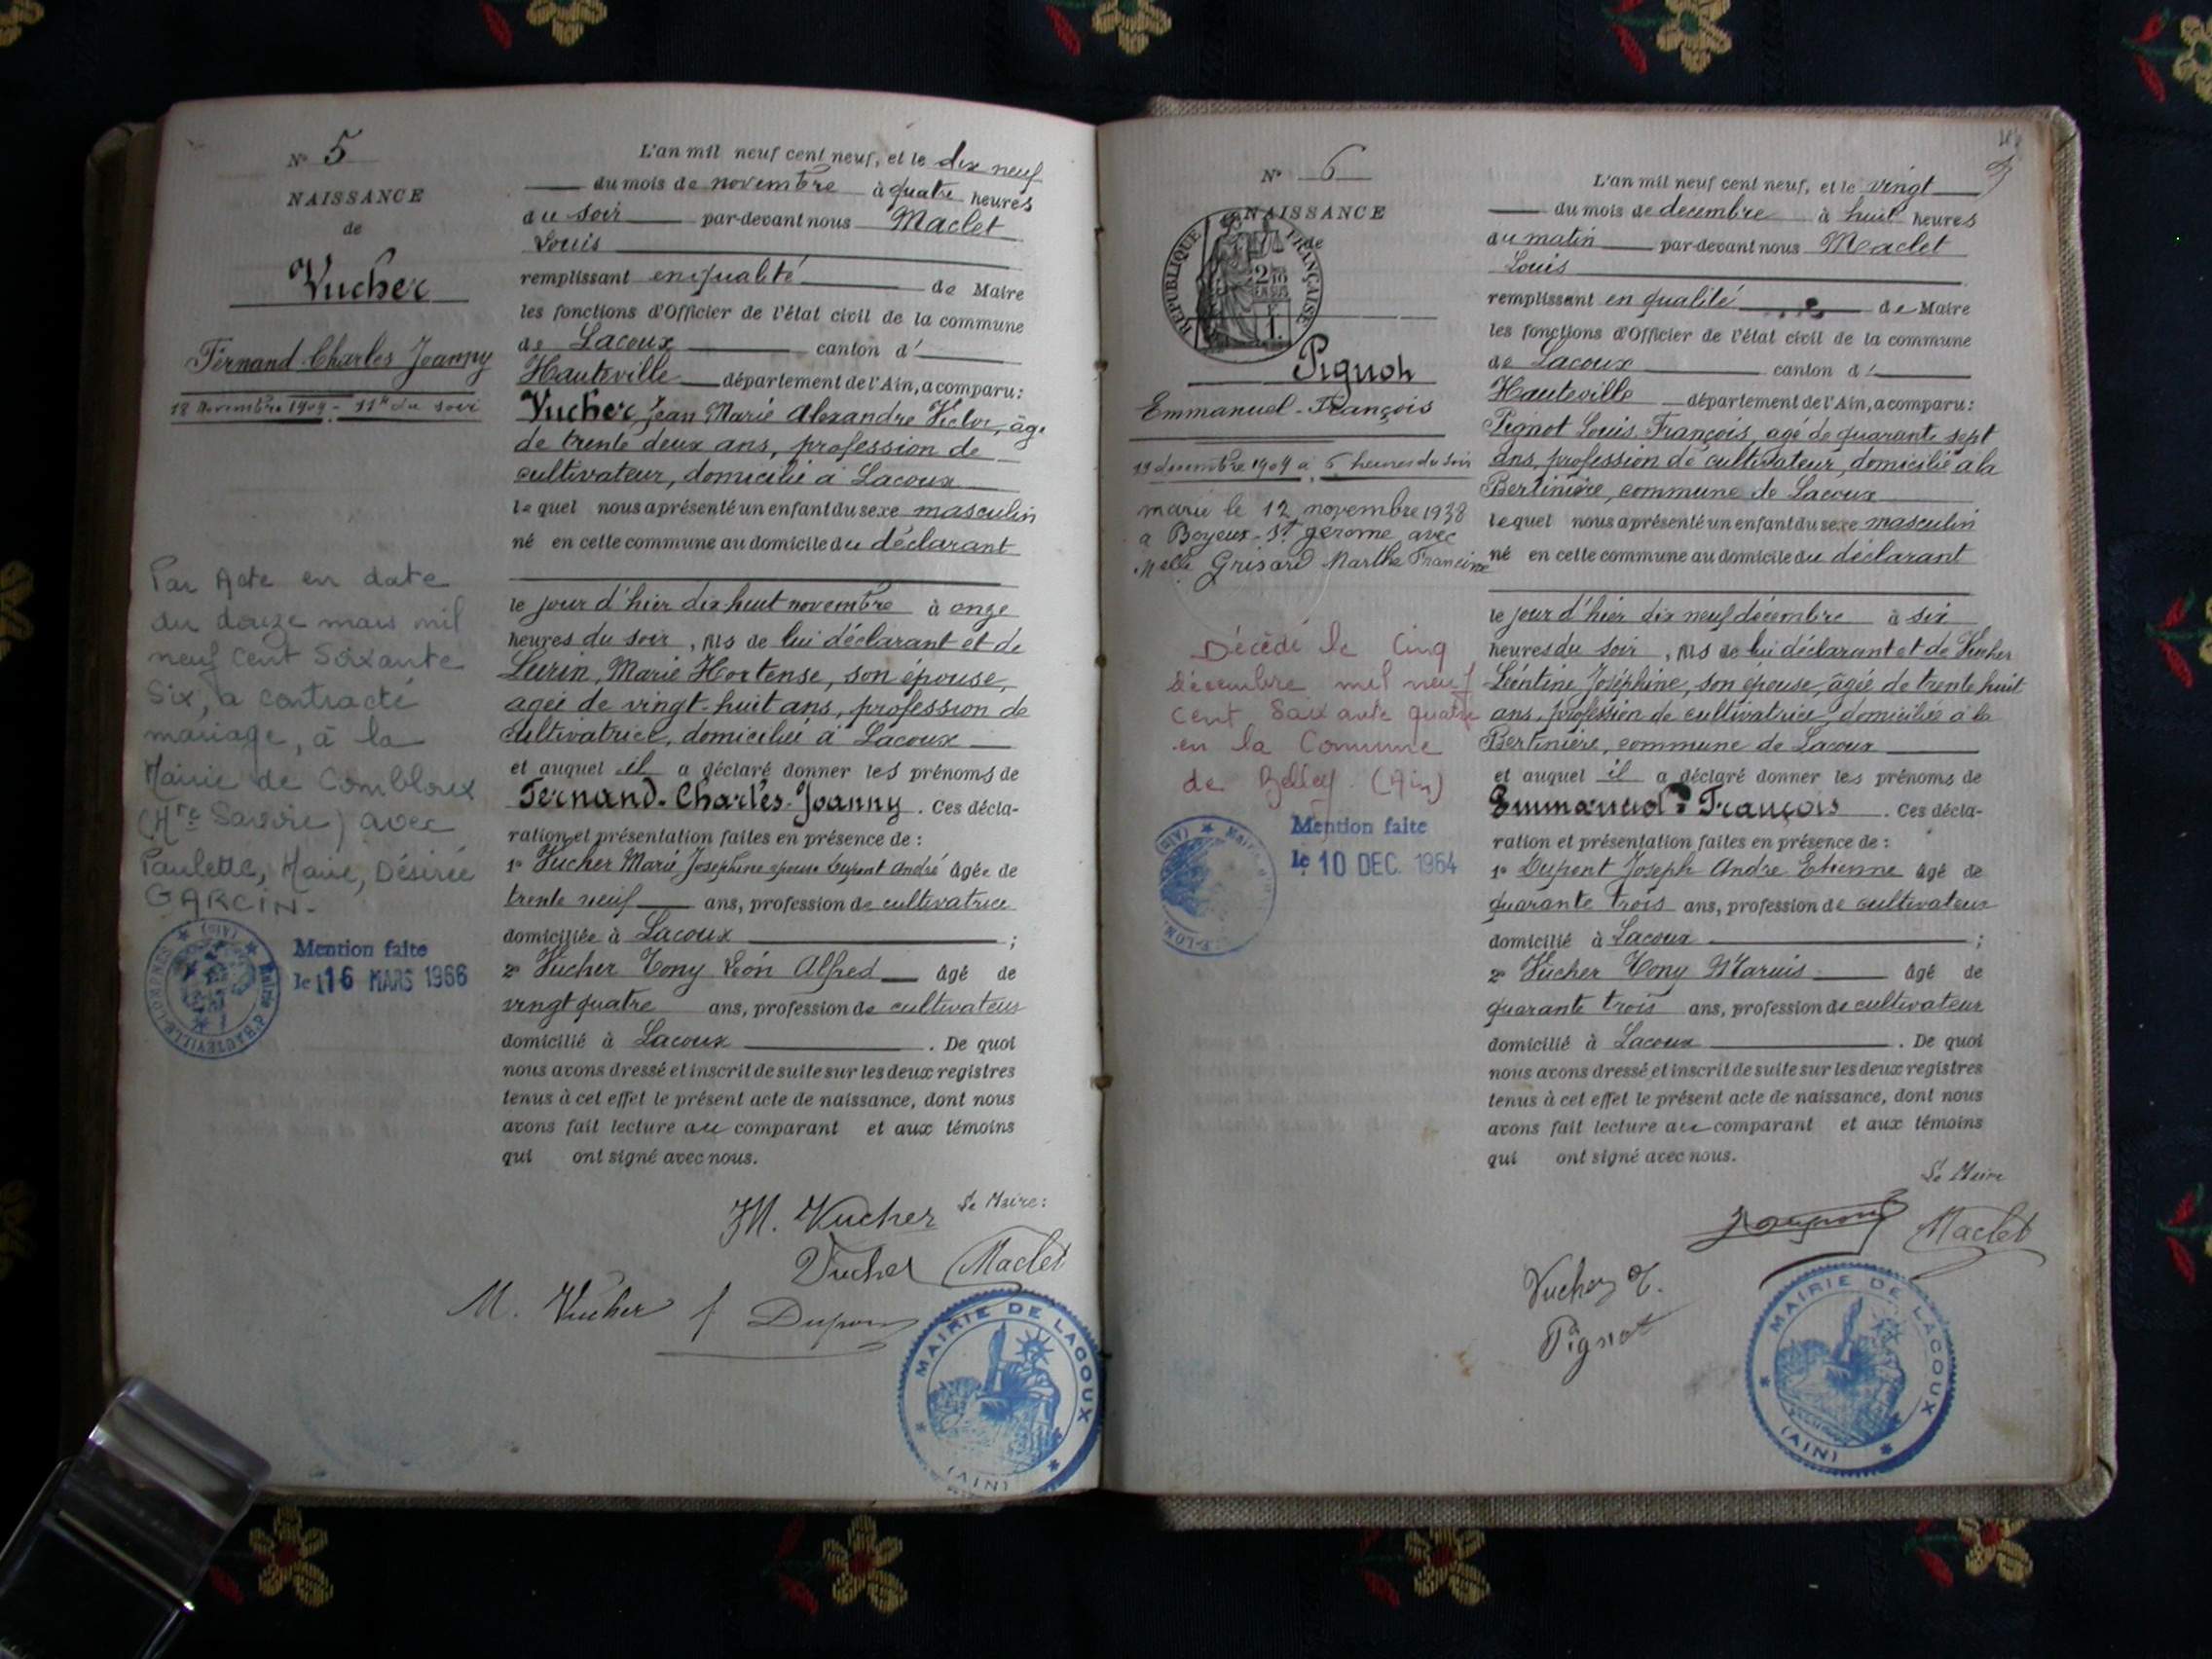 N° 5
NAISSANCE
de
Vucher
Fernand Charles Joanny
18 Novembre 1909 - 11h du soir
Par Acte en date
du douze mars mil
neuf cent soixante
six, a contracté
mariage, à la
Mairie de Combloux
(Hte Savoie) avec
Paulette, Marie, Désirée
GARCIN.
Mention faite
le 16 MARS 1966
MAIRIE D'HAUTEVILLE-LOMPNES (AIN)
L'an mil neuf cent neuf, et le dix neuf
du mois de novembre à quatre heures
du soir par-devant nous Maclet
Louis
remplissant en qualité de Maire
les fonctions d'Officier de l'état civil de la commune
de Lacoux canton d'
Hauteville département de l'Ain, a comparu:
Vucher Jean Marie Alexandre Victor, âgé
de trente deux ans, profession de
cultivateur, domicilié à Lacoux
lequel nous a présenté un enfant du sexe masculin
né en cette commune au domicile du déclarant
le jour d'hier dix huit novembre à onze
heures du soir, fils de lui déclarant et de
Marie Hortense, son épouse,
agée de vingt-huit ans, profession de
cultivatrice, domiciliée à Lacoux
et auquel il a déclaré donner les prénoms de
Fernand-Charles-Joanny. Ces décla-
ration et présentation faites en présence de :
1° Vucher Marie Josephine épouse Dupont André âgée de
trente neuf ans, profession de cultivatrice
domiciliée à Lacoux ;
2° Vucher Tony Léon Alfred âgé de
vingt quatre ans, profession de cultivateur
domicilié à Lacoux. De quoi
nous avons dressé et inscrit de suite sur les deux registres
tenus à cet effet le présent acte de naissance, dont nous
avons fait lecture au comparant et aux témoins
qui ont signé avec nous.
Le Maire:
Vucher
Vucher Maclet
M. Vucher f Dupont
MAIRIE DE LACOUX
(AIN)
N° 6
NAISSANCE
de
REPUBLIQUE FRANÇAISE
Pignot
Emmanuel-François
19 decembre 1909 à 6 heures du soir
marié le 12 novembre 1938
à Boyeux-St gerome avec
Melle Grisard Marthe Francine
Décédé le cinq
décembre mil neuf
cent soixante quatre
en la Commune
de Belley (Ain)
Mention faite
le 10 DEC. 1964
L'an mil neuf cent neuf, et le vingt
du mois de decembre à huit heures
du matin par-devant nous Maclet
Louis
remplissant en qualité de Maire
les fonctions d'Officier de l'état civil de la commune
de Lacoux canton d'
Hauteville département de l'Ain, a comparu:
Pignot Louis François, agé de quarante sept
ans, profession de cultivateur, domicilié à la
Bertinière, commune de Lacoux
lequel nous a présenté un enfant du sexe masculin
né en cette commune au domicile du déclarant
le jour d'hier dix neuf décembre à six
heures du soir, fils de lui déclarant et de Vucher
Léontine Joséphine, son épouse, âgée de trente huit
ans, profession de cultivatrice, domiciliée à la
Bertinière, commune de Lacoux
et auquel il a déclaré donner les prénoms de
Emmanuel-François. Ces décla-
ration et présentation faites en présence de :
1° Dupont Joseph André Etienne âgé de
quarante trois ans, profession de cultivateur
domicilié à Lacoux ;
2° Vucher Tony Maruis âgé de
quarante trois ans, profession de cultivateur
domicilié à Lacoux. De quoi
nous avons dressé et inscrit de suite sur les deux registres
tenus à cet effet le présent acte de naissance, dont nous
avons fait lecture au comparant et aux témoins
qui ont signé avec nous.
Le Maire
Dupont Maclet
Vucher T.
Pignot
MAIRIE DE LACOUX
(AIN)